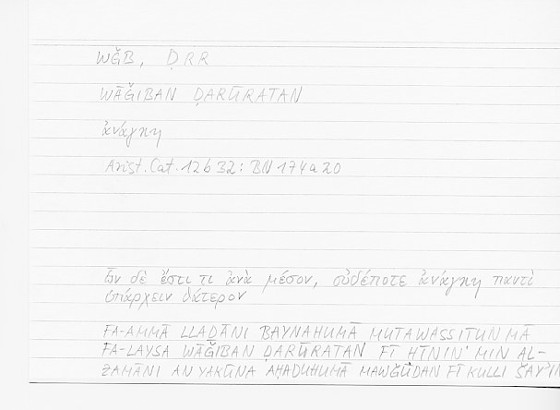 WǦB, ḌRR
WĀǦIBAN ḌARŪRATAN
ἀνάγκη
Arist. Cat. 12b32: BN 174a20
ὧν δέ ἔστι τι ἀνὰ μέσον, οὐδέποτε ἀνάγκη παντὶ
ὑπάρχειν θάτερον
FA-AMMĀ LLAḎĀNI BAYNAHUMĀ MUTAWASSIṬUN MĀ
FA-LAYSA WĀǦIBAN ḌARŪRATAN FĪ ḤĪNIN MIN AL-
ZAMĀNI AN YAKŪNA AḤADUHUMĀ MAWǦŪDAN FĪ KULLI ŠAYʾIN